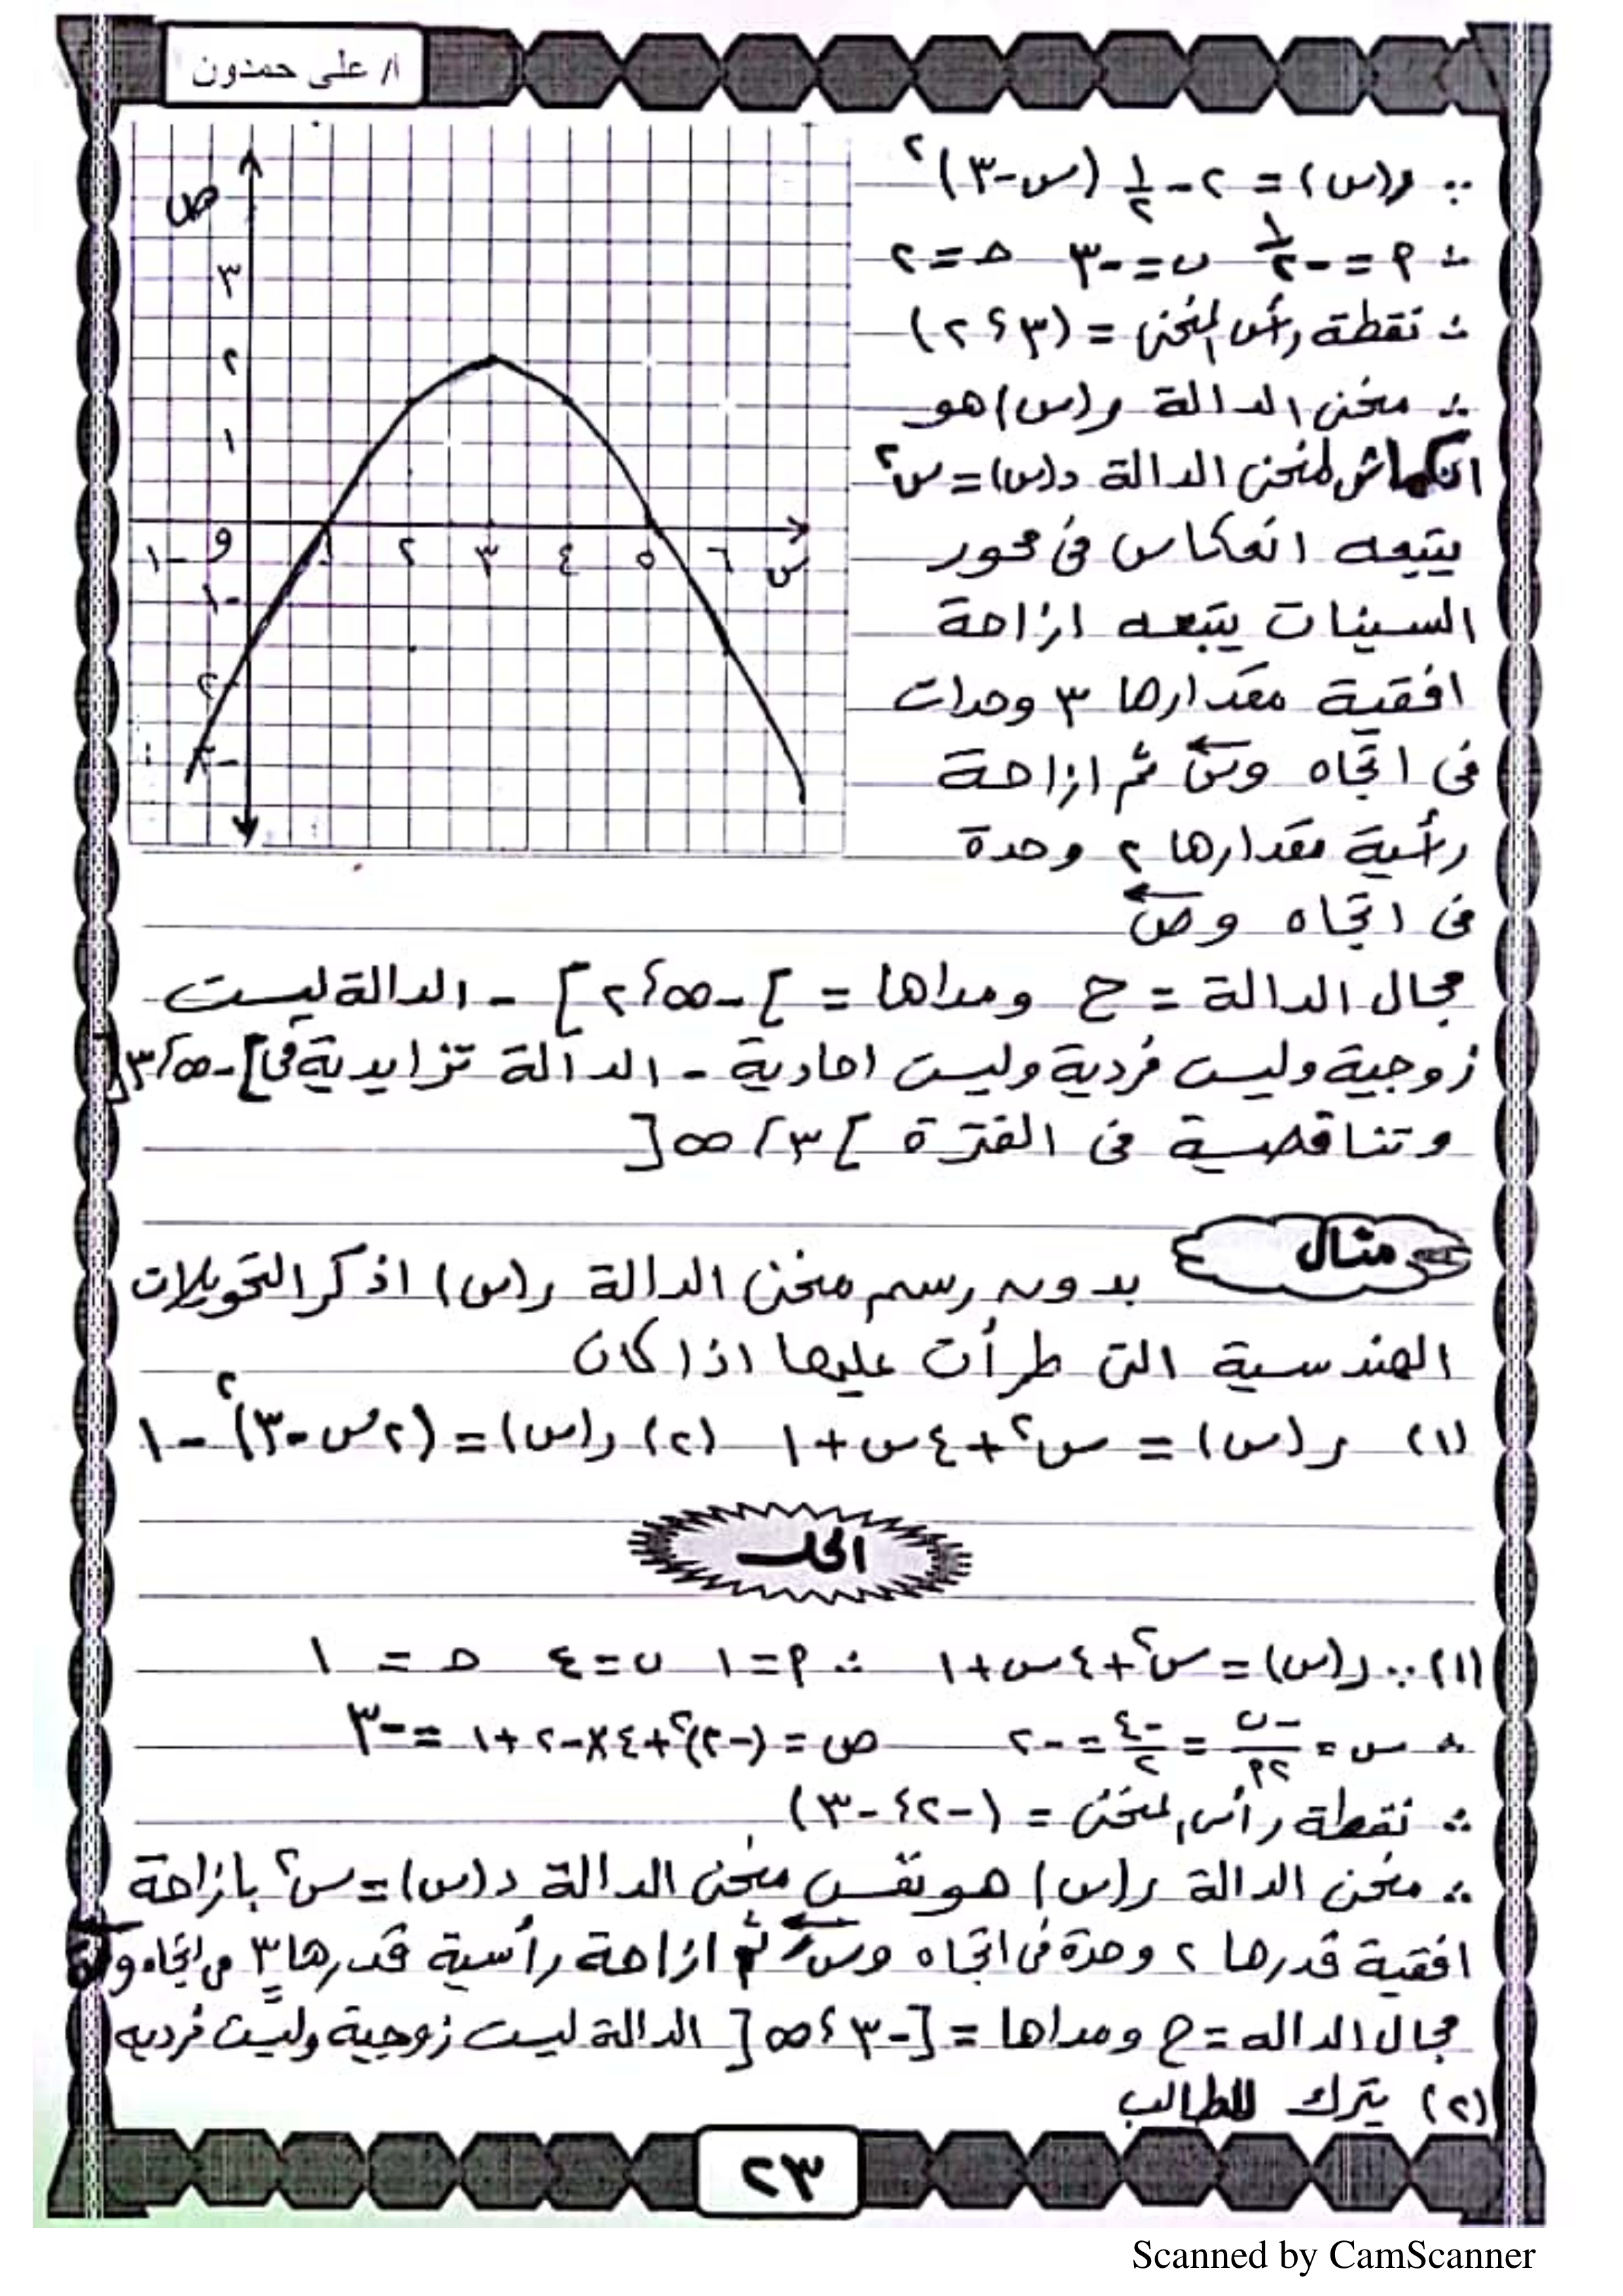 ا/ علي حمدون
∵ ر(س) = ٢ - ١/٢ (س-٣)^٢
∴ م = -١/٢ ن = -٣ ح = ٢
∴ نقطة رأس المنحنى = (٣ ، ٢)
∴ منحنى الدالة ر(س) هو
انكماش لمنحنى الدالة د(س) = س^٢
يتبعه انعكاس فى محور
السينات يتبعه ازاحة
افقية مقدارها ٣ وحدات
فى اتجاه وسَ ثم ازاحة
رأسية مقدارها ٢ وحدة
فى اتجاه وصَ
ص
٣
٢
١
-١ و ١ ٢ ٣ ٤ ٥ ٦ س
-١
-٢
-٣
مجال الدالة = ح ومداها = ]-∞ ، ٢] - الدالة ليست
زوجية وليست فردية وليست احادية - الدالة تزايدية فى ]-∞ ، ٣[
وتناقصية فى الفترة ]٣ ، ∞[
مثال
بدون رسم منحنى الدالة ر(س) اذكر التحويلات
الهندسية التى طرأت عليها اذا كان
(١) ر(س) = س^٢ + ٤س + ١ (٢) ر(س) = (٢س - ٣)^٢ - ١
الحل
(١) ∵ ر(س) = س^٢ + ٤س + ١ ∴ م = ١ ب = ٤ ح = ١
∴ س = -ب/٢م = -٤/٢ = -٢ ص = (-٢)^٢ + ٤×-٢ + ١ = -٣
∴ نقطة رأس المنحنى = (-٢ ، -٣)
∴ منحنى الدالة ر(س) هو نفس منحنى الدالة د(س) = س^٢ بازاحة
افقية قدرها ٢ وحدة فى اتجاه وسَ ثم ازاحة رأسية قدرها ٣ فى اتجاه
مجال الداله = ح ومداها = [-٣ ، ∞[ الدالة ليست زوجية وليست فرديه
(٢) يترك للطالب
٢٣
Scanned by CamScanner